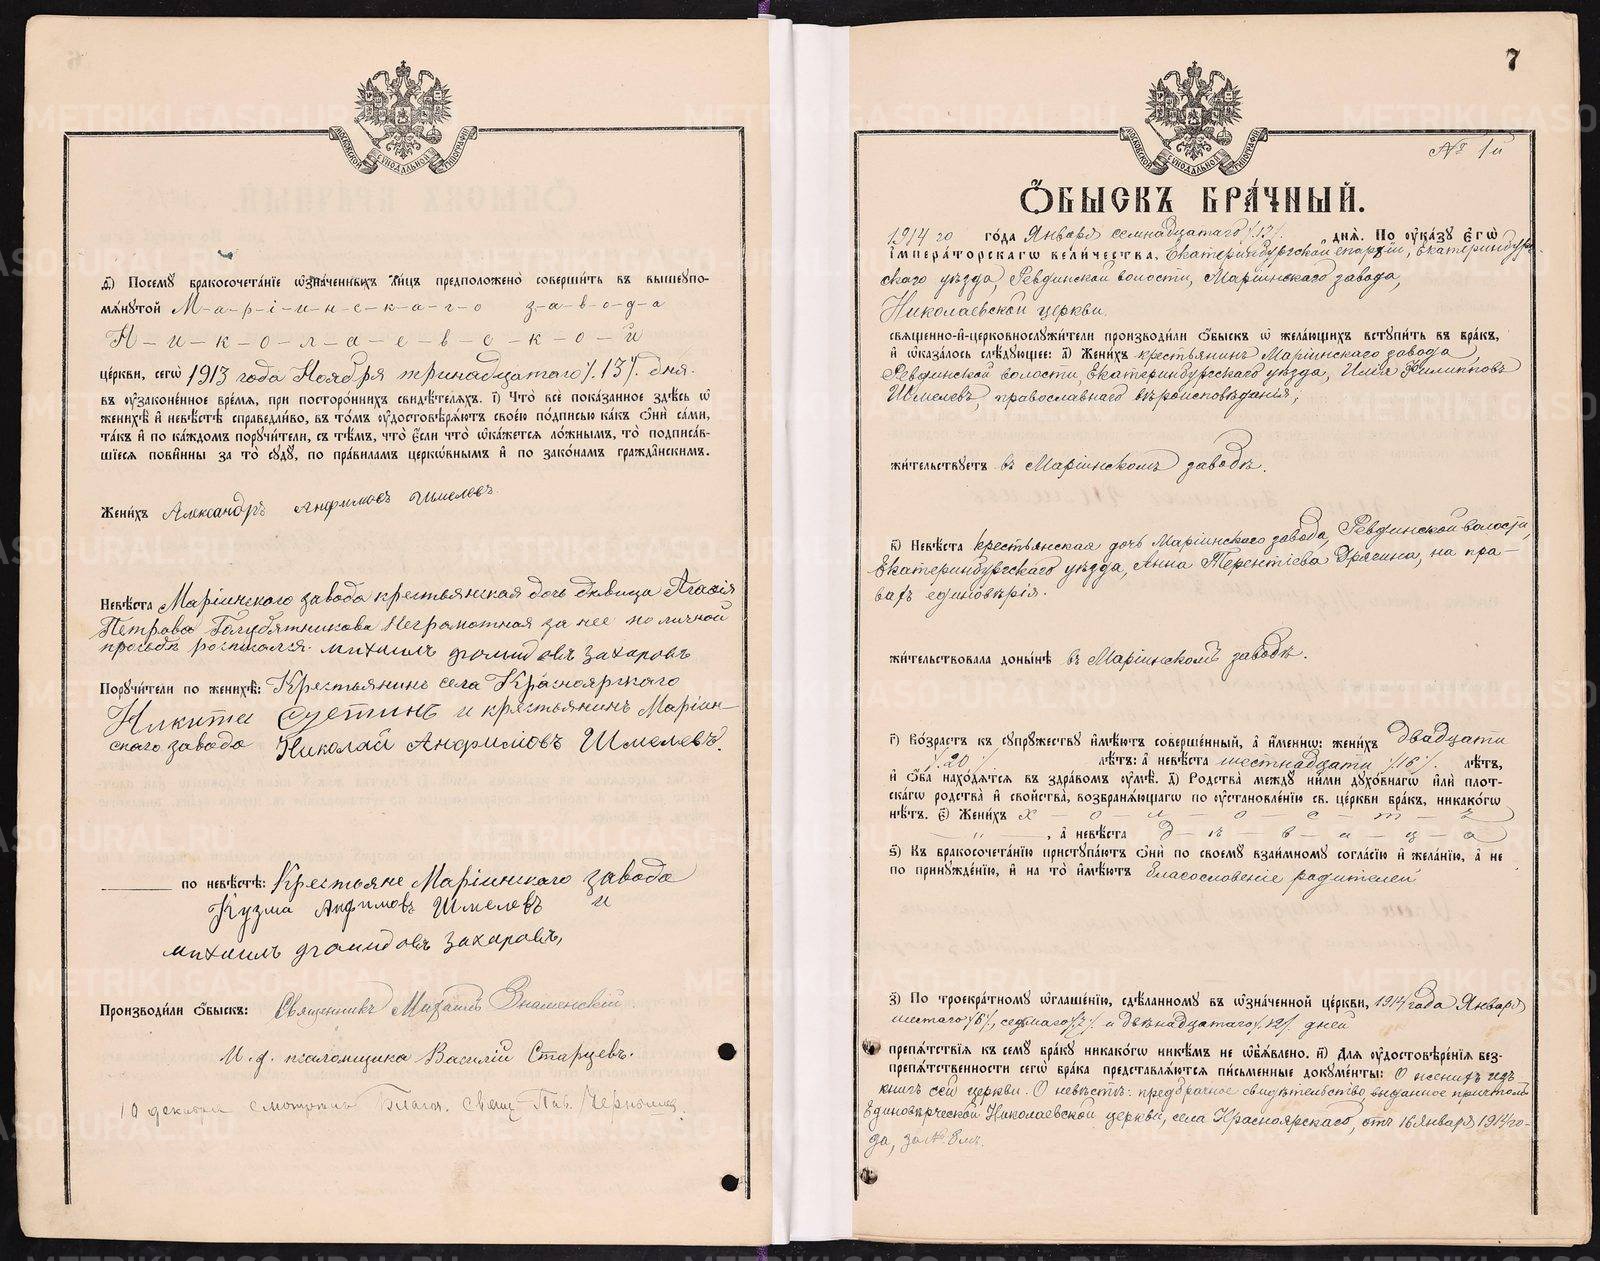 МОСКОВСКОЙ СѴНОДАЛЬНОЙ ТИПОГРАФІИ
д҃) Посемꙋ̀ бракосочета́нїе ѡ҆зна́ченныхъ ли́цъ предположено̀ соверши́ть въ вышеупо-
мѧ́нутой М-а-р-і-и-н-с-к-а-г-о з-а-в-о-д-а
Н-и-к-о-л-а-е-в-с-к-о-й
це́ркви, сегѡ̀ 1913 года Ноября тринадцатаго /.13/. дня.
въ ᲂу҆зако́ненное вре́мѧ, при посторо́ннихъ свидѣ́телѧхъ. і҃) Что̀ всѐ пока́занное здѣ́сь ѡ҆
женихѣ̀ и҆ невѣ́стѣ справедли́во, въ то́мъ ᲂу҆достовѣрѧ́ютъ свое́ю по́дписью ка́къ ѻ҆нѝ са́ми,
та́къ и҆ по ка́ждомъ порꙋчи́тели, съ тѣ́мъ, что̀ є҆́сли что̀ ѡ҆ка́жетсѧ ло́жнымъ, то̀ подписа́в-
шїесѧ пови́нны за то̀ сꙋдꙋ̀, по пра́виламъ церко́внымъ и҆ по зако́намъ гражда́нскимъ.
Жени́хъ Александръ Анфимовъ Шмелевъ
Невѣ́ста Маріинскаго завода крестьянская дочь девица Агафія
Петрова Голубятникова неграмотная за нее по личной
просьбѣ росписался михаилъ захаровъ
Порꙋчи́тели по женихѣ̀: Крестьянинъ села Красноярскаго
Никита Суетинъ и крестьянинъ Маріин-
скаго завода Николай Анфимовъ Шмелевъ.
по невѣ́стѣ: Крестьяне Маріинскаго завода
Кузма Анфимовъ Шмелевъ и
михаилъ захаровъ,
Производи́ли ѻ҆́быскъ: Священникъ Михаилъ Знаменскій
И. д. псаломщика Василій Старцевъ.
10 декабря смотрѣлъ Благоч. свящ. Пав.
7
№ 1й
МОСКОВСКОЙ СѴНОДАЛЬНОЙ ТИПОГРАФІИ
Ѻ҆́БЫСКЪ БРА́ЧНЫЙ.
1914 го го́да Января семнадцатаго /.17/. днѧ̀. По ᲂу҆ка́зꙋ Є҆гѡ̀
И҆мпера́торскагѡ вели́чества, Екатеринбургской епархіи, Екатеринбург-
скаго уѣзда, Ревдинской волости, Маріинскаго завода,
Николаевской церкви
свѧще́нно-и҆-церковнослꙋжи́тели производи́ли ѻ҆́быскъ ѡ҆ жела́ющихъ встꙋпи́ть въ бра́къ,
и҆ ѡ҆каза́лось слѣ́дꙋющее: а҃) Жени́хъ крестьянинъ Маріинскаго завода,
Ревдинской волости, Екатеринбургскаго уѣзда, Илья Филипповъ
Шмелевъ, православнаго вѣроисповѣданія,
жи́тельствꙋетъ въ Маріинскомъ заводѣ.
в҃) Невѣ́ста крестьянская дочь Маріинскаго завода, Ревдинской волости,
Екатеринбургскаго уѣзда, Анна Терентіева Драгина, на пра-
вахъ единовѣрія.
жи́тельствовала доны́нѣ въ Маріинскомъ заводѣ.
г҃) Во́зрастъ къ сꙋпрꙋ́жествꙋ и҆мѣ́ютъ соверше́нный, а҆ и҆́меннѡ: жени́хъ двадцати
/.20./ лѣ́тъ: а҆ невѣ́ста шестнадцати /.16/. лѣ́тъ,
и҆ ѻ҆́ба нахо́дѧтсѧ въ здра́вомъ ᲂу҆мѣ̀. д҃) Родства̀ междꙋ̀ ни́ми дꙋхо́внагѡ и҆лѝ пло́т-
скагѡ родства̀ и҆ сво́йства, возбранѧ́ющагѡ по ᲂу҆становле́нїю св. це́ркви бра́къ, никако́гѡ
нѣ́тъ. є҃) Жени́хъ х — о — л — о — с — т — ъ
— „ — , а҆ невѣ́ста д — ѣ — в — и — ц — а
ѕ҃) Къ бракосочета́нїю пристꙋпа́ютъ ѻ҆нѝ по своемꙋ̀ взаи́мномꙋ согла́сїю и҆ жела́нїю, а҆ не
по принꙋжде́нїю, и҆ на то̀ и҆мѣ́ютъ благословеніе родителей
з҃) По троекра́тномꙋ ѡ҆глаше́нїю, сдѣ́ланномꙋ въ ѡ҆зна́ченной це́ркви, 1914 года Января
шестаго /6/., седьмаго /.7./ и двѣнадцатаго /.12/. дней
препѧ́тствїѧ къ семꙋ̀ бра́кꙋ никако́гѡ никѣ́мъ не ѡ҆б̾ѧ́влено. и҃) Длѧ̀ ᲂу҆достовѣ́ренїѧ без-
препѧ́тственности сегѡ̀ бра́ка представлѧ́ютсѧ пи́сьменные докꙋме́нты: О женихѣ изъ
книгъ сей церкви. О невѣстѣ: предбрачное свидѣтельство, выданное причтомъ
Единовѣрческой Николаевской церкви, села Красноярскаго, отъ 16 Января 1914 го-
да, за № 8мъ.
METRIKI.GASO-URAL.RU